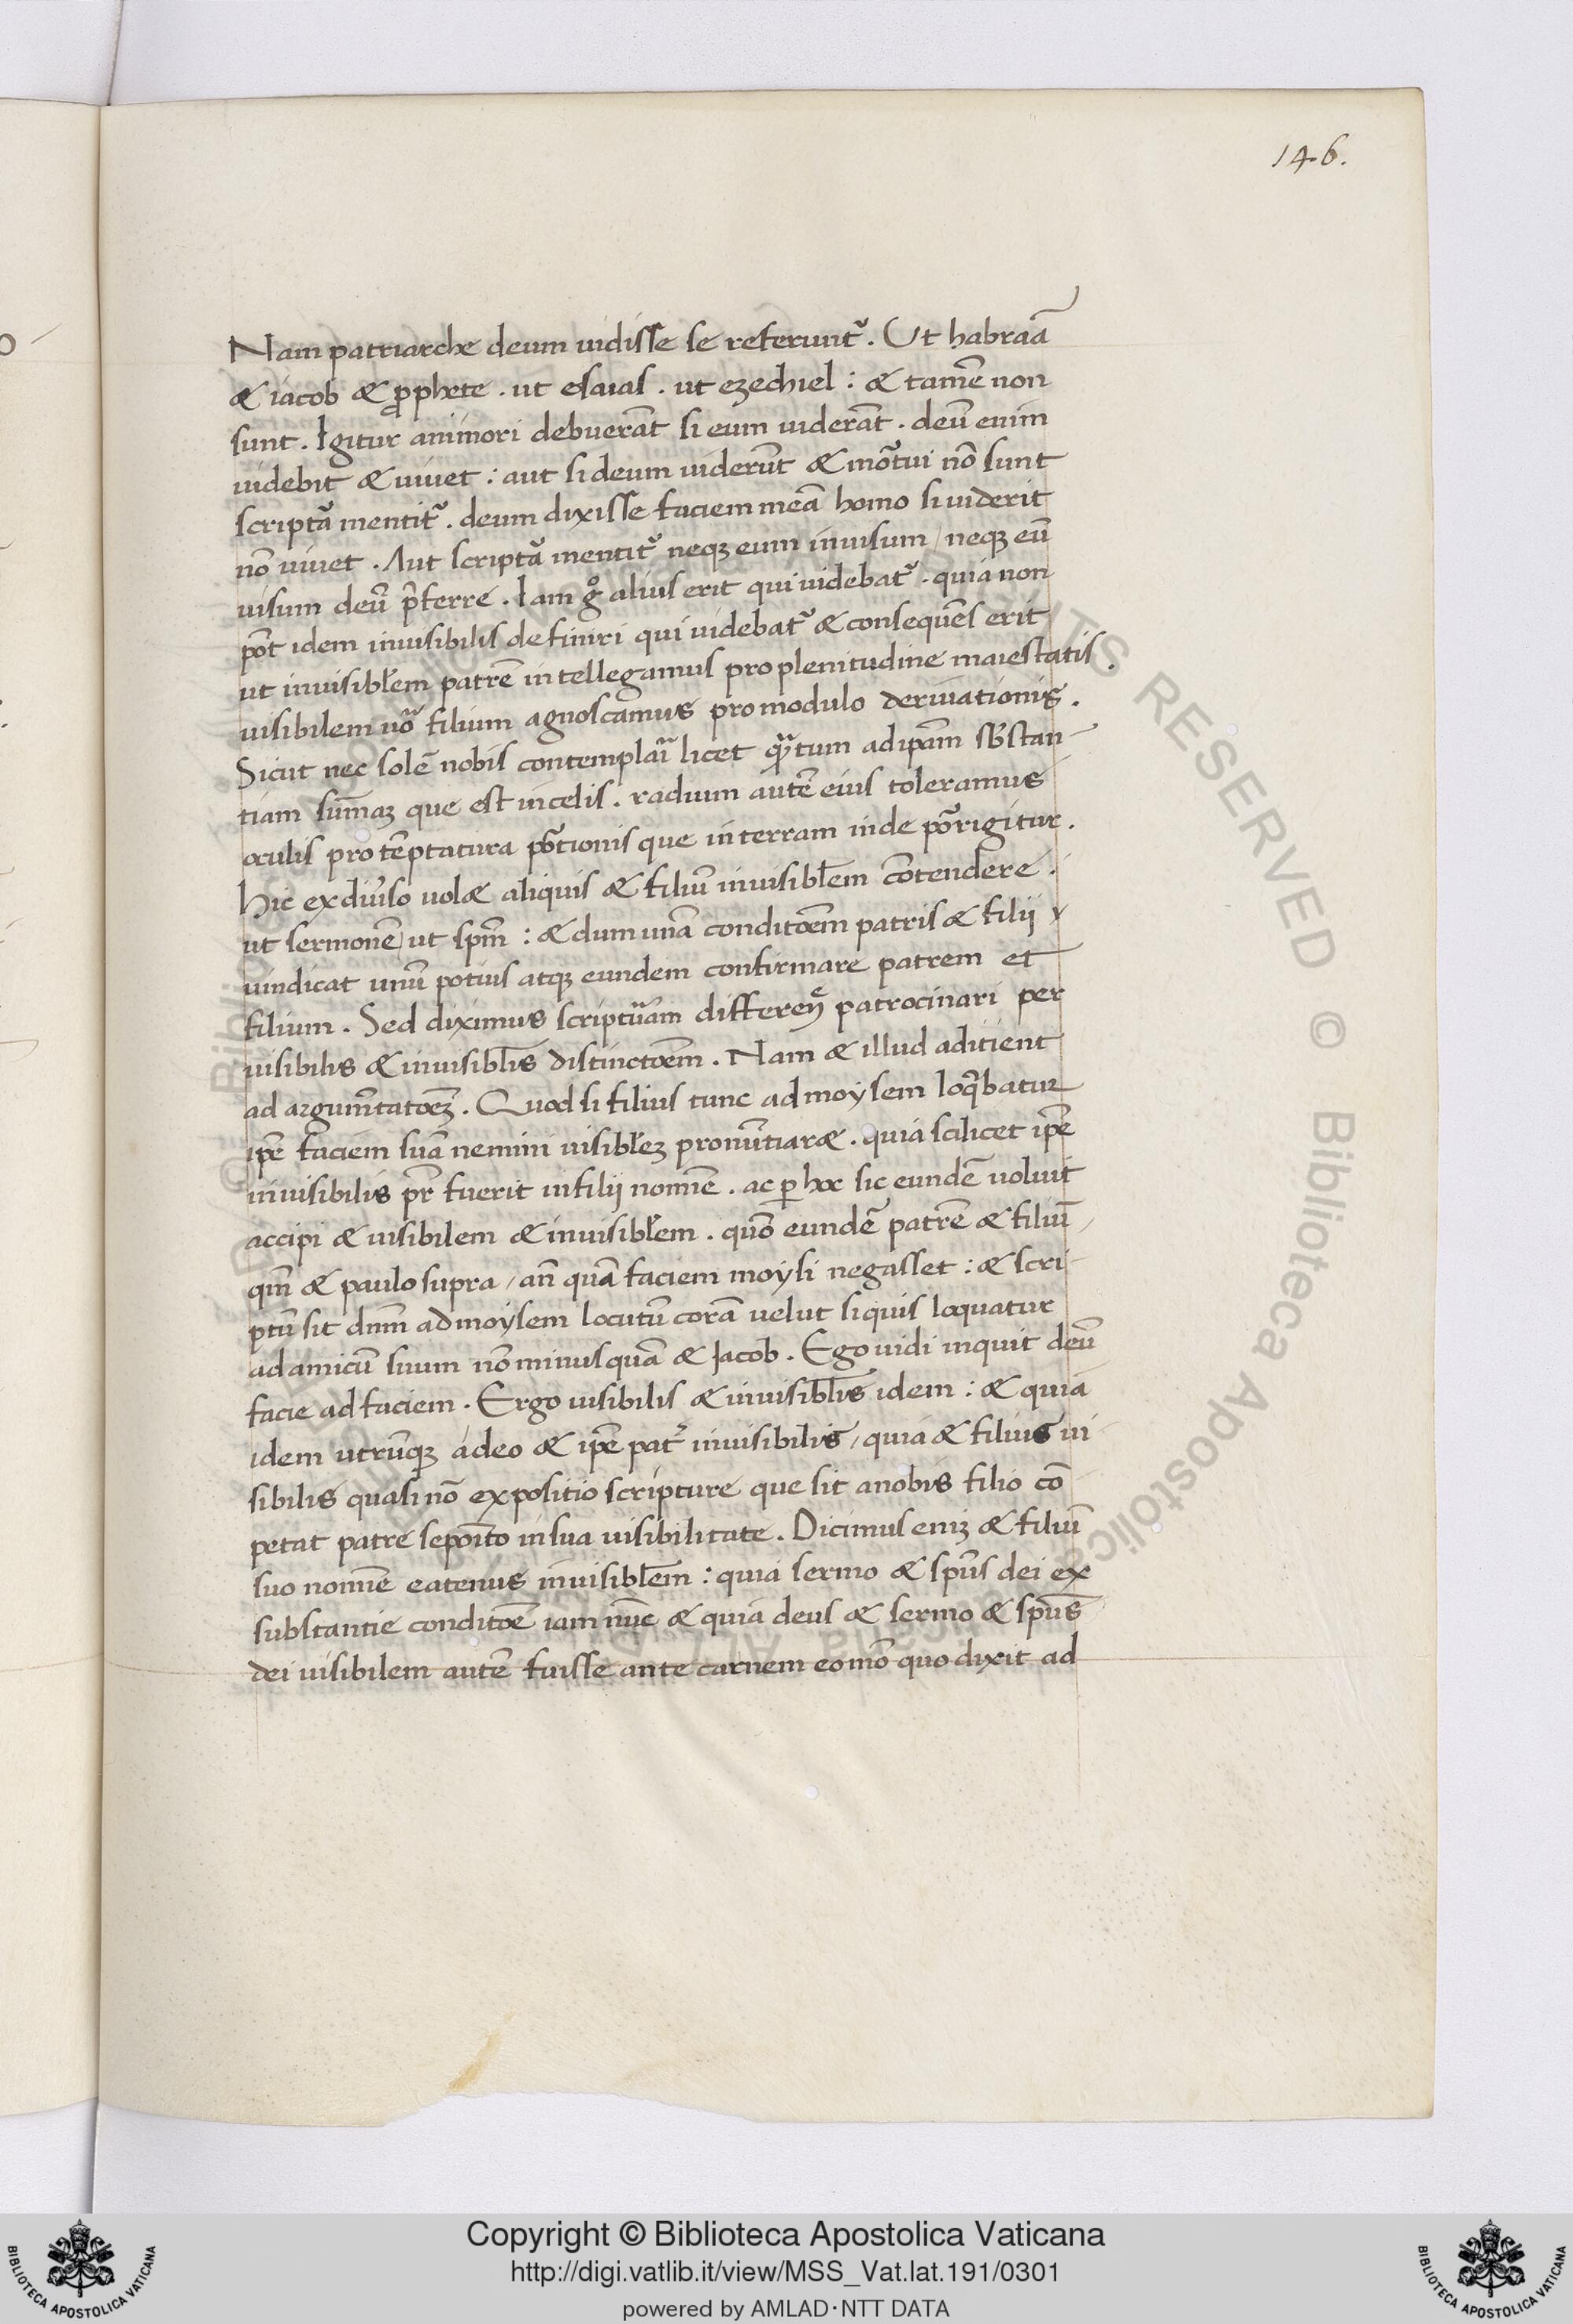 146.
Nam patriarche deum uidisse se referunt᷑. Ut habraã
& iacob & ꝓphete. ut esaias. ut ezechiel: & tamẽ non
sunt. Igitur an̄ mori debuerãt si eum uiderãt. deũ enim
uidebit & uiuet: aut si deum uiderũt & mõtui nõ sunt
scriptã mentit᷑. deum dixisse faciem meã homo si uiderit
nõ uiuet. Aut scriptã mentit᷑ neqꝫ eum inuisum / neqꝫ eũ
uisum deũ p̃ferre. Iam gͦ alius erit qui uidebat᷑. quia non
põt idem inuisibilis definiri qui uidebat᷑ & consequẽs erit
ut inuisibłem patrẽ intellegamus pro plenitudine maiestatis.
uisibilem uõ filium agnoscamus pro modulo deriuationis.
Sicut nec solẽ nobis contemplari licet quãtum ad ipãm sb̃stan-
tiam sum̃aꝫ que est in celis. radium autẽ eius toleramus
oculis pro tẽptatura põtionis que in terram inde põrrigitur.
Hic ex diũso uol& aliquis & filiũ inuisibłem cõtendere.
ut sermonẽ / ut sp̃m: & dum unã conditõem patris & filii
uindicat unũ potius atqꝫ eundem confirmare patrem et
filium. Sed diximus scriptũam differẽtie patrocinari per
uisibilis & inuisibłis distinctõem. Nam & illud aditient
ad argumẽtatõeꝫ. Quod si filius tunc ad moysem loq̃batur
ip̃e faciem suã nemini uisibłeꝫ pronũtiar&. quia scilicet ip̃e
inuisibilis pr̃ fuerit in filij nomĩe. ac ꝑ hoc sic eundẽ uoluit
accipi & uisibilem & inuisibłem. quõ eundẽ patrẽ & filiũ /
qm̃ & paulo supra / an̄ quã faciem moysi negasset: & scri-
ptũ sit dnm̃ ad moysem locutũ corã uelut si quis loquatur
ad amicũ suum nõ minus quã & Jacob. Ego uidi inquit deũ
facie ad faciem. Ergo uisibilis & inuisibłis idem: & quia
idem utrũqꝫ adeo & ip̃e pat᷑ inuisibilis / quia & filius ui
sibilis quasi nõ expositio scripture que sit a nobis filio cõ
petat patre sepõito in sua uisibilitate. Dicimus eniꝫ & filiũ
suo nomĩe eatenus inuisibłem: quia sermo & sp̃us dei ex
substantie conditõe iam nũc & quia deus & sermo & sp̃us
dei uisibilem autẽ fuisse ante carnem eo mõ quo dixit ad
© Biblioteca Apostolica Vaticana ALL RIGHTS RESERVED
Copyright © Biblioteca Apostolica Vaticana
http://digi.vatlib.it/view/MSS_Vat.lat.191/0301
powered by AMLAD·NTT DATA
BIBLIOTECA APOSTOLICA VATICANA
BIBLIOTECA APOSTOLICA VATICANA